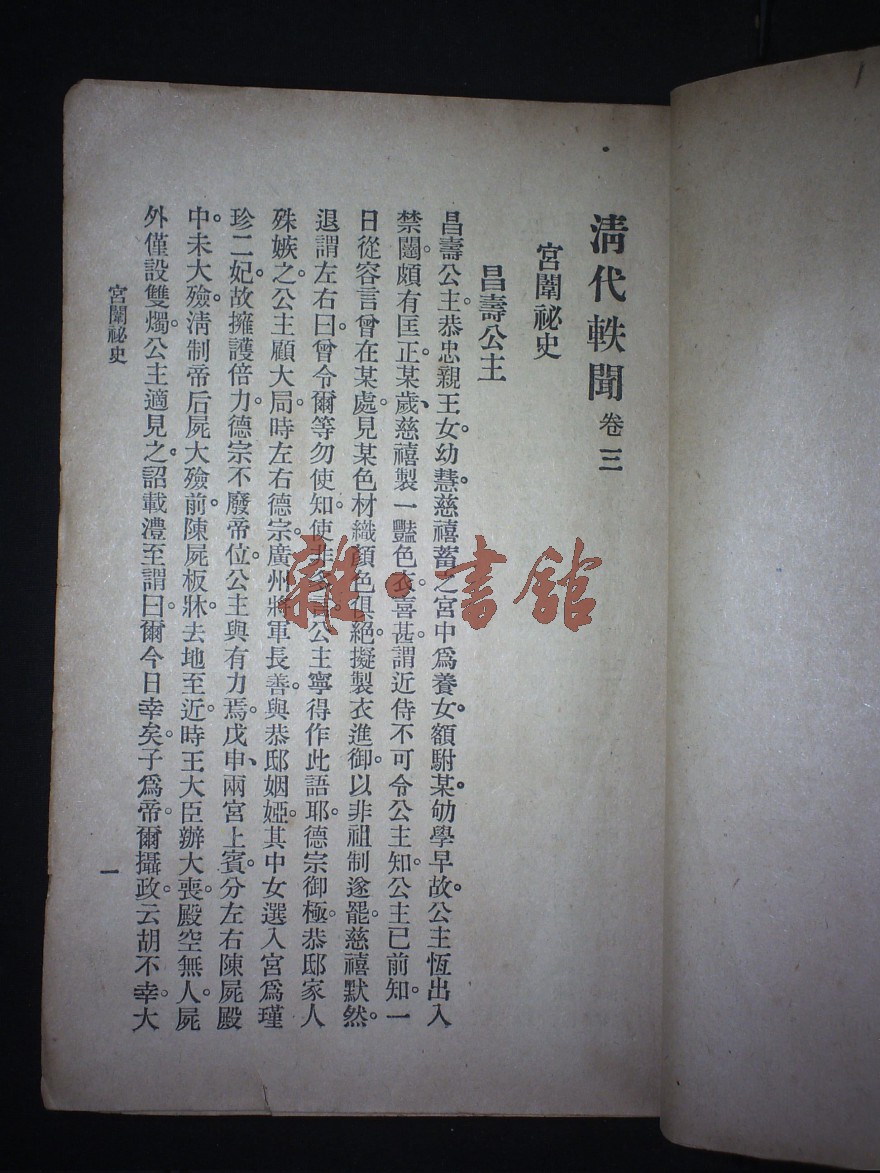 清代軼聞 卷三
宮闈祕史
昌壽公主
昌壽公主。恭忠親王女。幼慧。慈禧蓄之宮中爲養女。額駙某。劬學早故。公主恆出入
禁闥。頗有匡正。某歲、慈禧製一豔色衣。喜甚。謂近侍不可令公主知。公主已前知。一
日從容言曾在某處見某色材織顏色俱絕。擬製衣進御。以非祖制遂罷。慈禧默然。
退謂左右曰。曾令爾等勿使知。使非 公主寧得作此語耶。德宗御極。恭邸家人
殊嫉之。公主顧大局。時左右德宗。廣州將軍長善。與恭邸姻婭。其中女選入宮爲瑾
珍二妃。故擁護倍力。德宗不廢帝位。公主與有力焉。戊申、兩宮上賓。分左右陳屍殿
中。未大殮。清制帝后屍大殮前。陳屍板牀。去地至近。時王大臣辦大喪。殿空無人。屍
外僅設雙燭。公主適見之。詔載灃至。謂曰。爾今日幸矣。子爲帝。爾攝政。云胡不幸。大
宮闈祕史
一
雜·書館
1